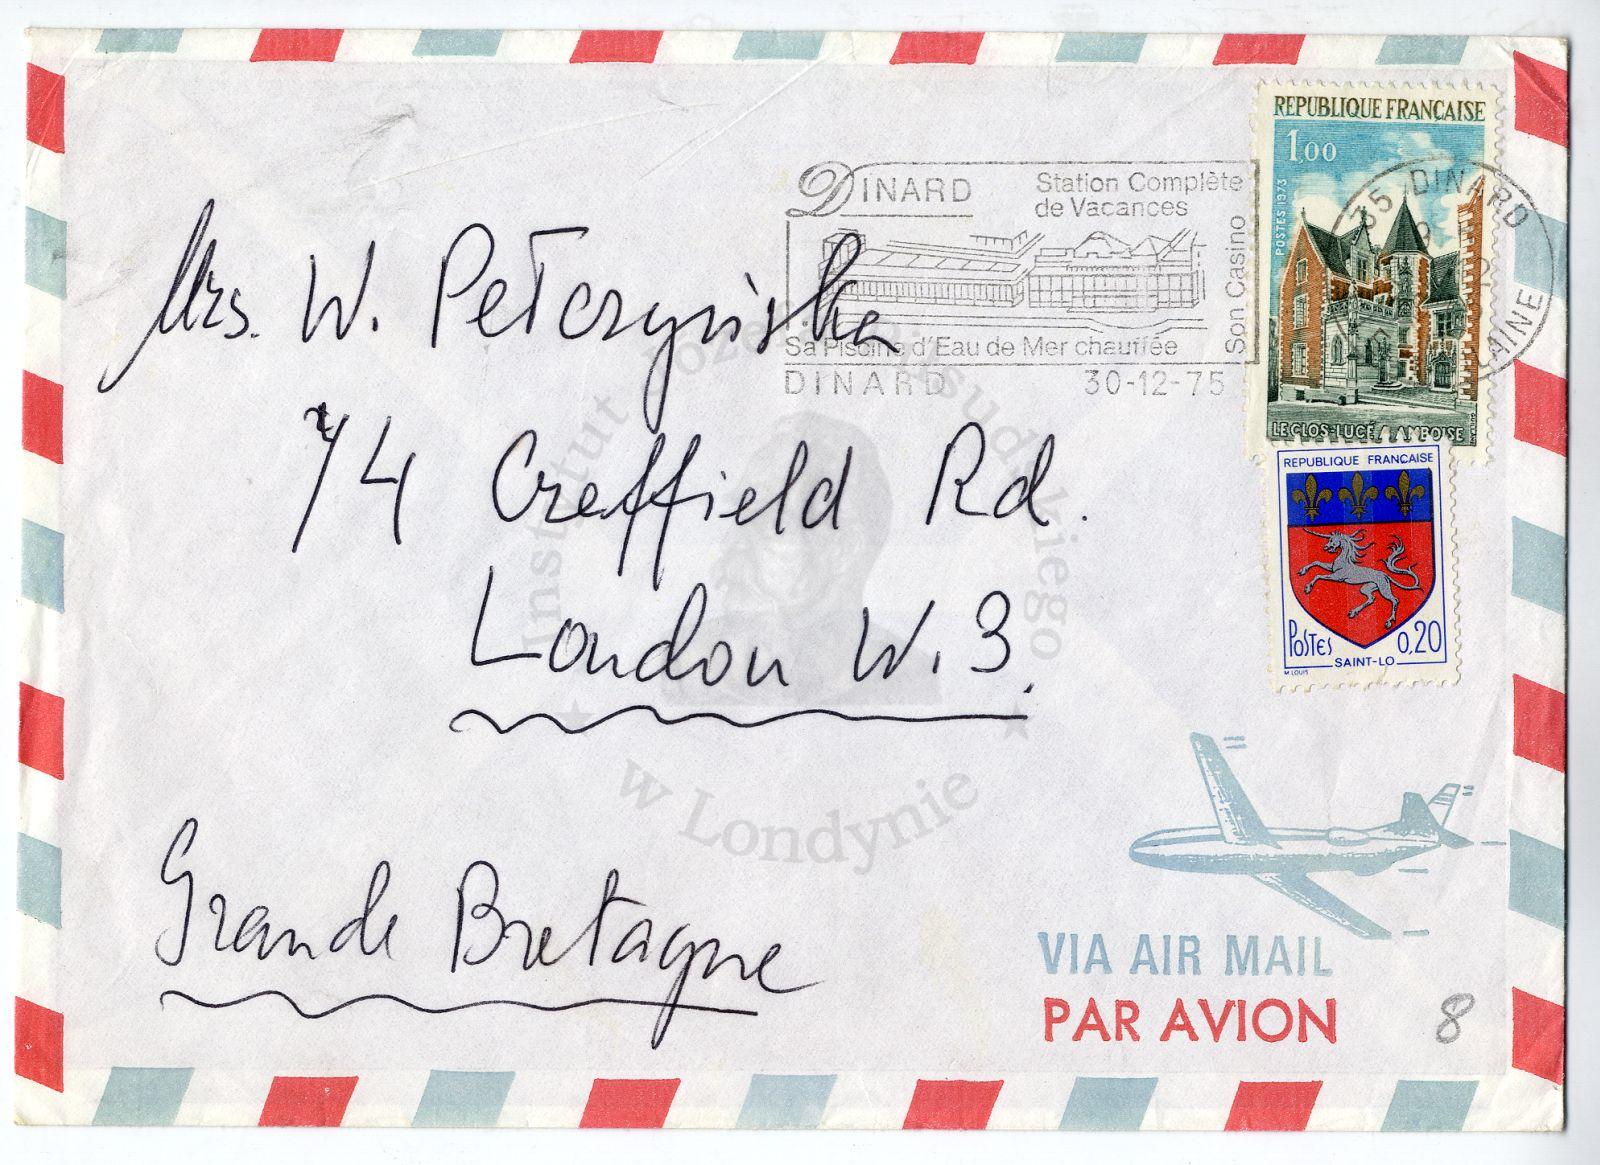 REPUBLIQUE FRANÇAISE
1,00
POSTES 1973
LE CLOS-LUCÉ AMBOISE
DINARD
Station Complète
de Vacances
Son Casino
Sa Piscine d'Eau de Mer chauffée
DINARD 30-12-75
35 DINARD
REPUBLIQUE FRANÇAISE
POSTES 0,20
SAINT-LO
M LOUIS
Mrs. W. Petczyńska
74 Creffield Rd.
London W.3.
Grande Bretagne
VIA AIR MAIL
PAR AVION
8
Instytut Józefa Piłsudskiego
w Londynie